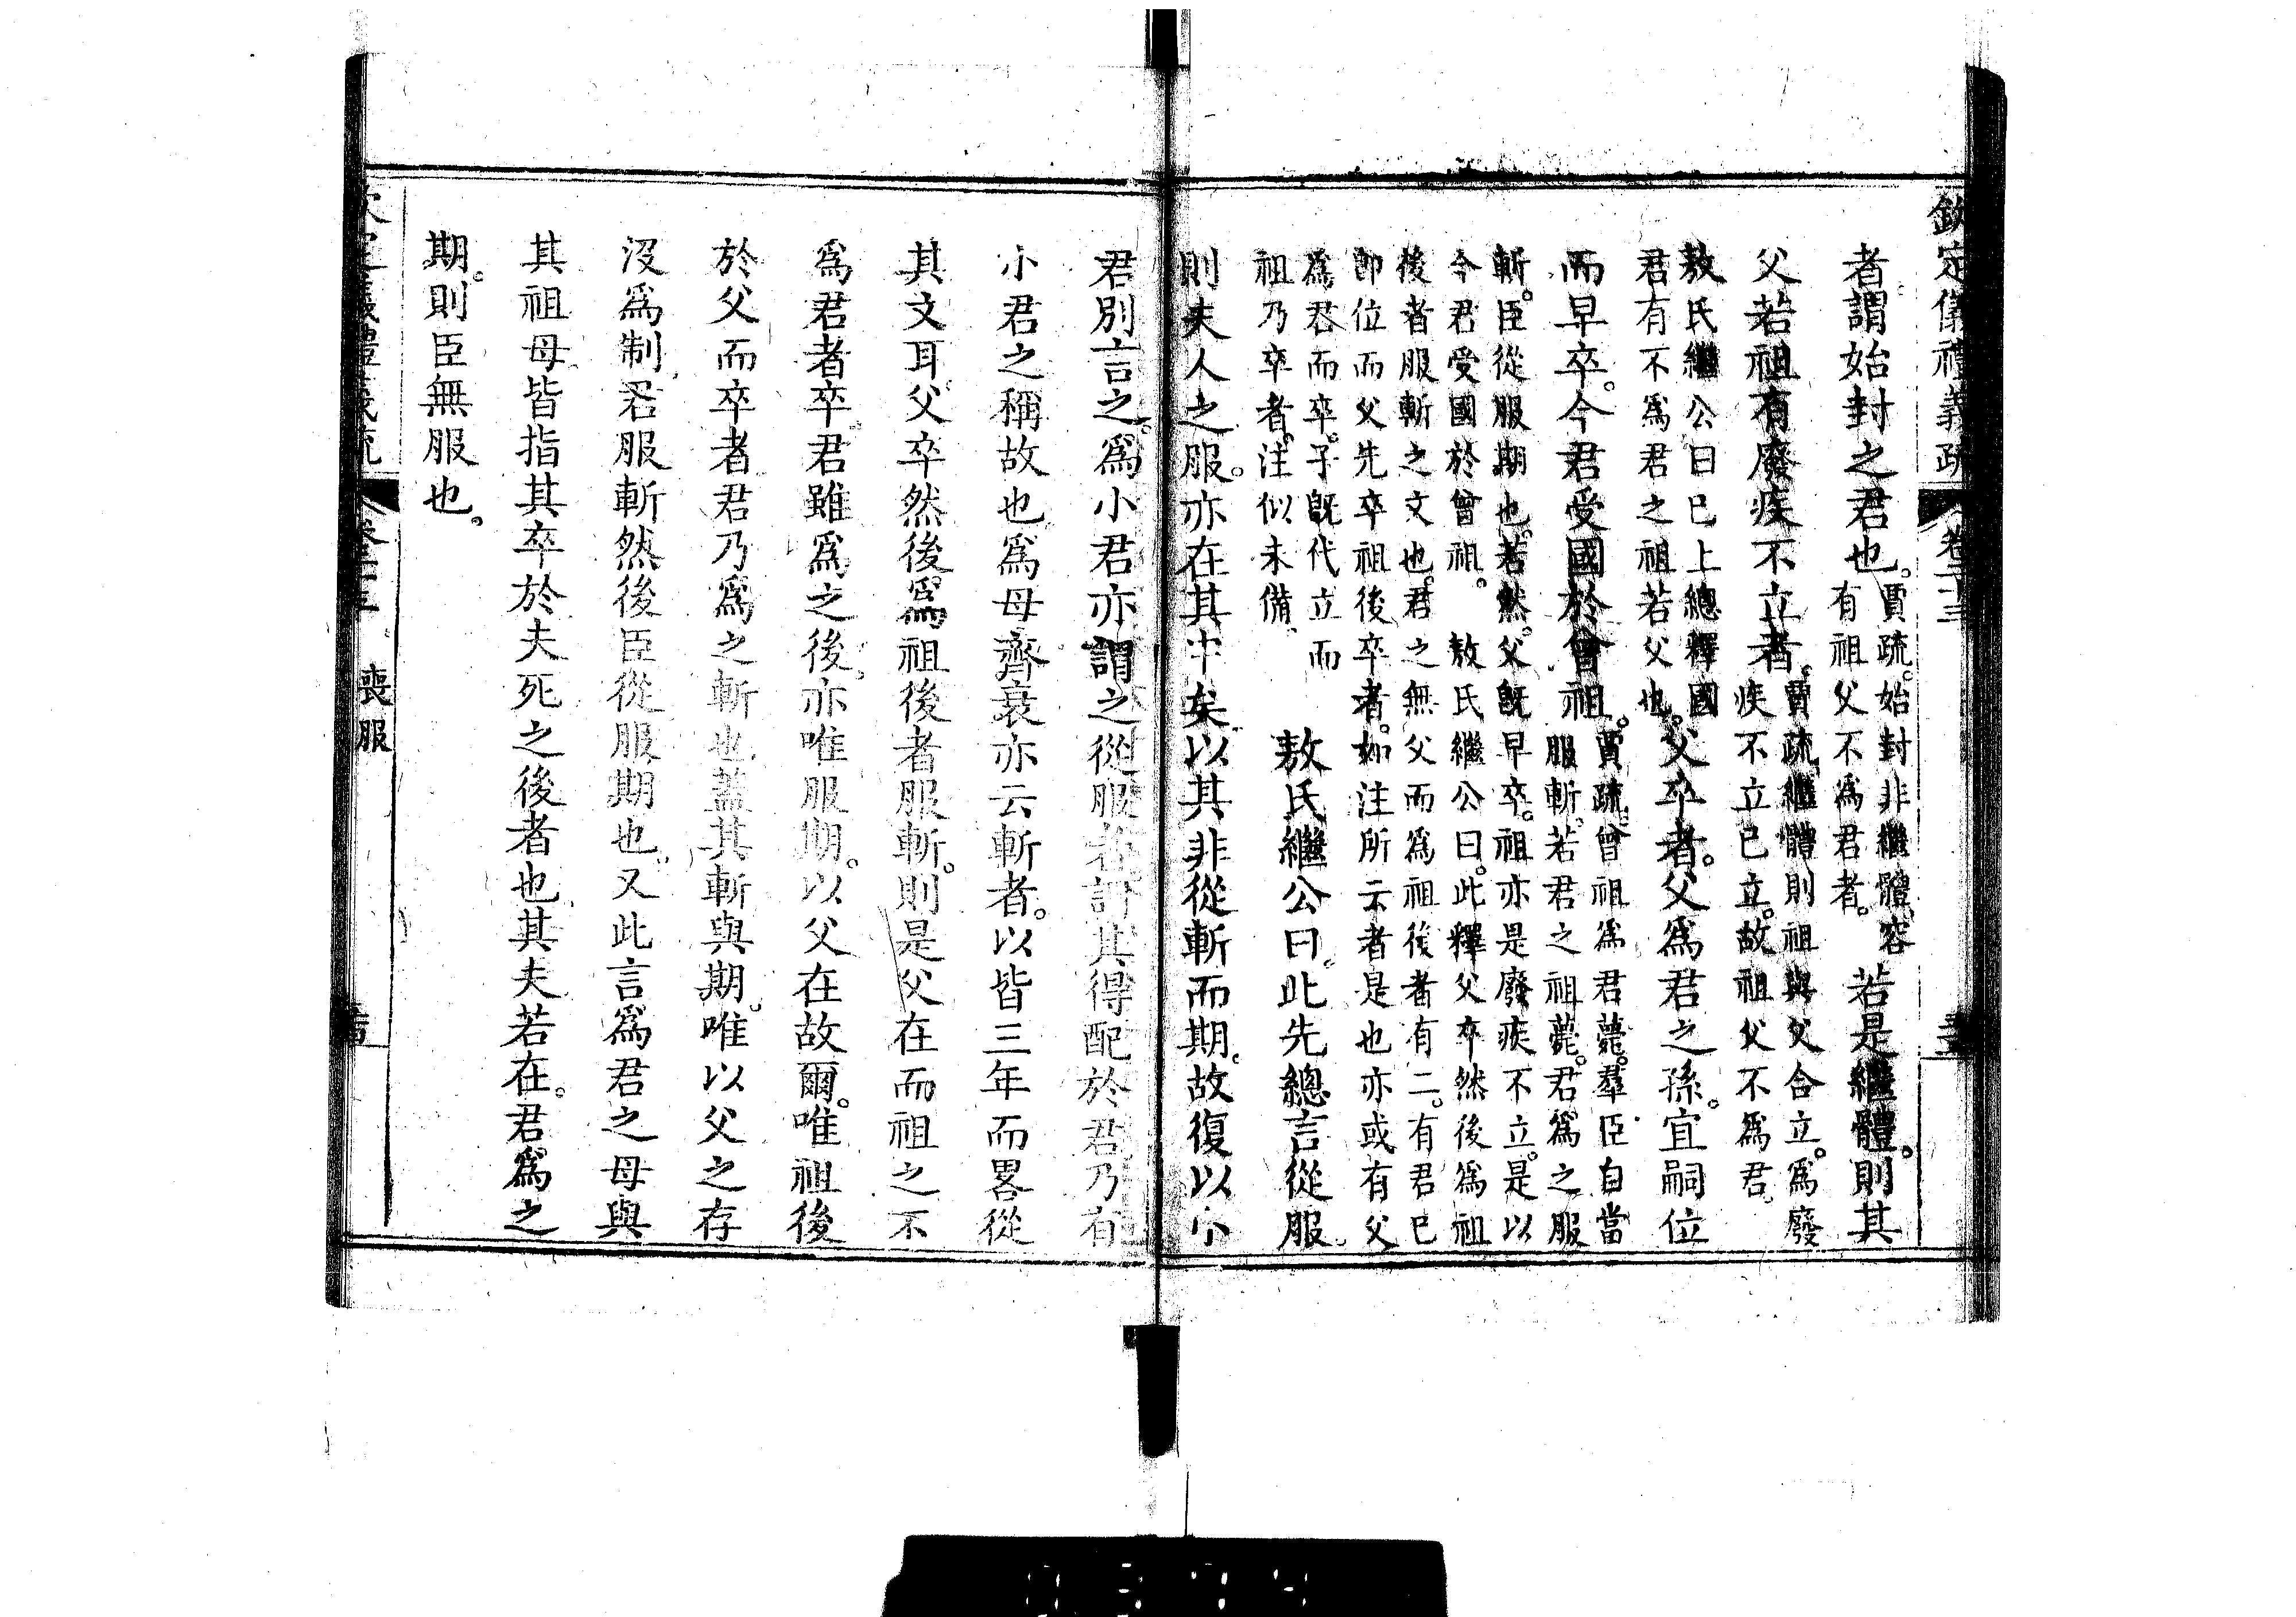 欽定儀禮義疏 卷二十三
者謂始封之君也。賈疏。始封非繼體、容
有祖父不為君者。若是繼體。則其
父若祖有廢疾不立者。賈疏、繼體則祖與父合立。為廢
疾不立已立。故祖父不為君。
敖氏繼公曰已上總釋國
君有不爲君之祖若父也。父卒者。父爲君之孫。宜嗣位
而早卒。今君受國於曾祖。賈疏、曾祖爲君薨。羣臣自當
服斬、若君之祖薨。君爲之服
斬。臣從服期也。若然。父旣早卒。祖亦是廢疾不立。是以
今君受國於曾祖。 敖氏繼公曰。此釋父卒然後爲祖
後者服斬之文也。君之無父而爲祖後者有二。有君已
卽位而父先卒祖後卒者。如注所云者是也亦或有父
爲君而卒。子旣代立而
祖乃卒者。注似未備 敖氏繼公曰。此先總言從服
則夫人之服。亦在其中矣以其非從斬而期。故復以小
君別言之。爲小君亦謂之從服者許其得配於君乃有
小君之稱故也爲母齊衰亦云斬者。以皆三年而畧從
其文耳父卒然後爲祖後者服斬。則是父在而祖之不
爲君者卒。君雖爲之後。亦唯服期。以父在故爾。唯祖後
於父而卒者君乃爲之斬也蓋其斬與期。唯以父之存
沒爲制君服斬然後臣從服期也。又此言爲君之母與
其祖母皆指其卒於夫死之後者也其夫若在。君爲之
期。則臣無服也。
卷二十三 喪服